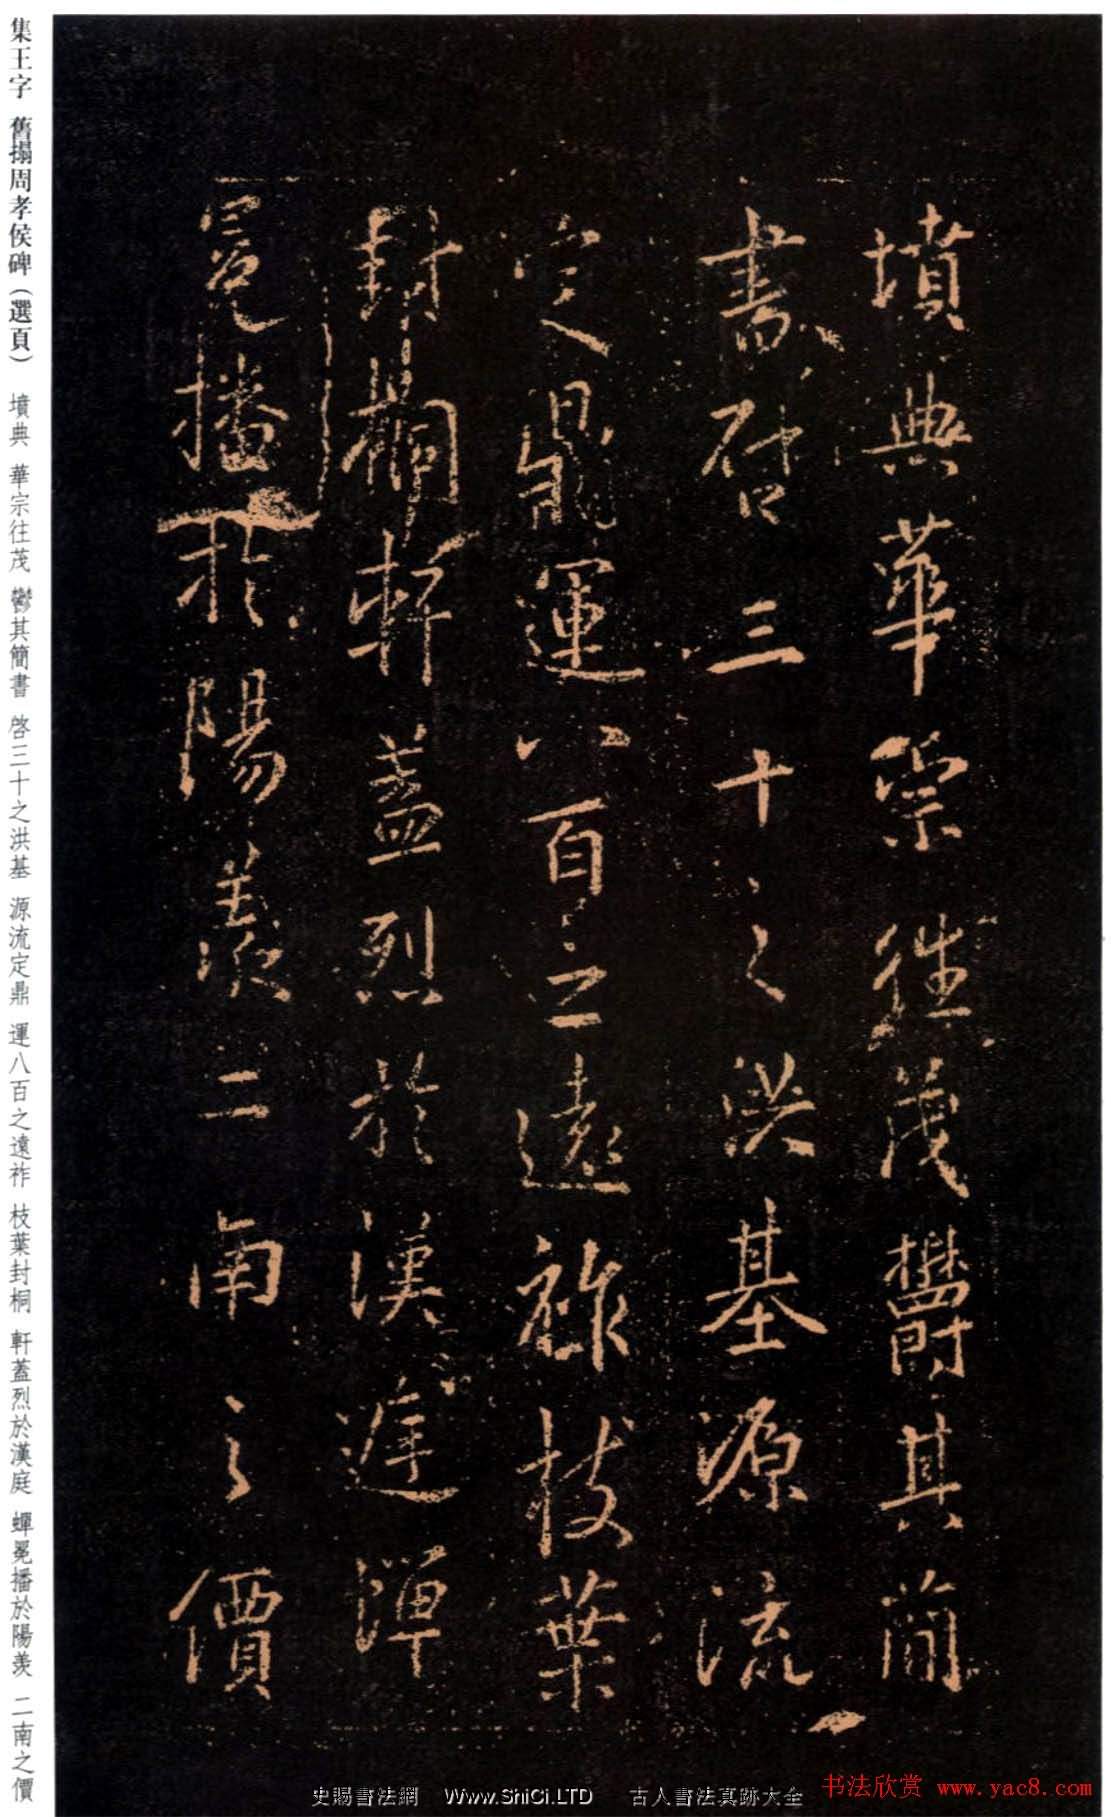 墳典華宗往茂鬱其簡
書啓三十之洪基源流
定鼎運八百之遠祚枝葉
封桐軒蓋烈於漢庭蟬
冕播於陽羨二南之價
集王字 舊搨周孝侯碑（選頁） 墳典 華宗往茂 鬱其簡書 啓三十之洪基 源流定鼎 運八百之遠祚 枝葉封桐 軒蓋烈於漢庭 蟬冕播於陽羨 二南之價
史賜書法網 Www.ShiCi.LTD 古人書法真跡大全
书法欣赏 www.yac8.com